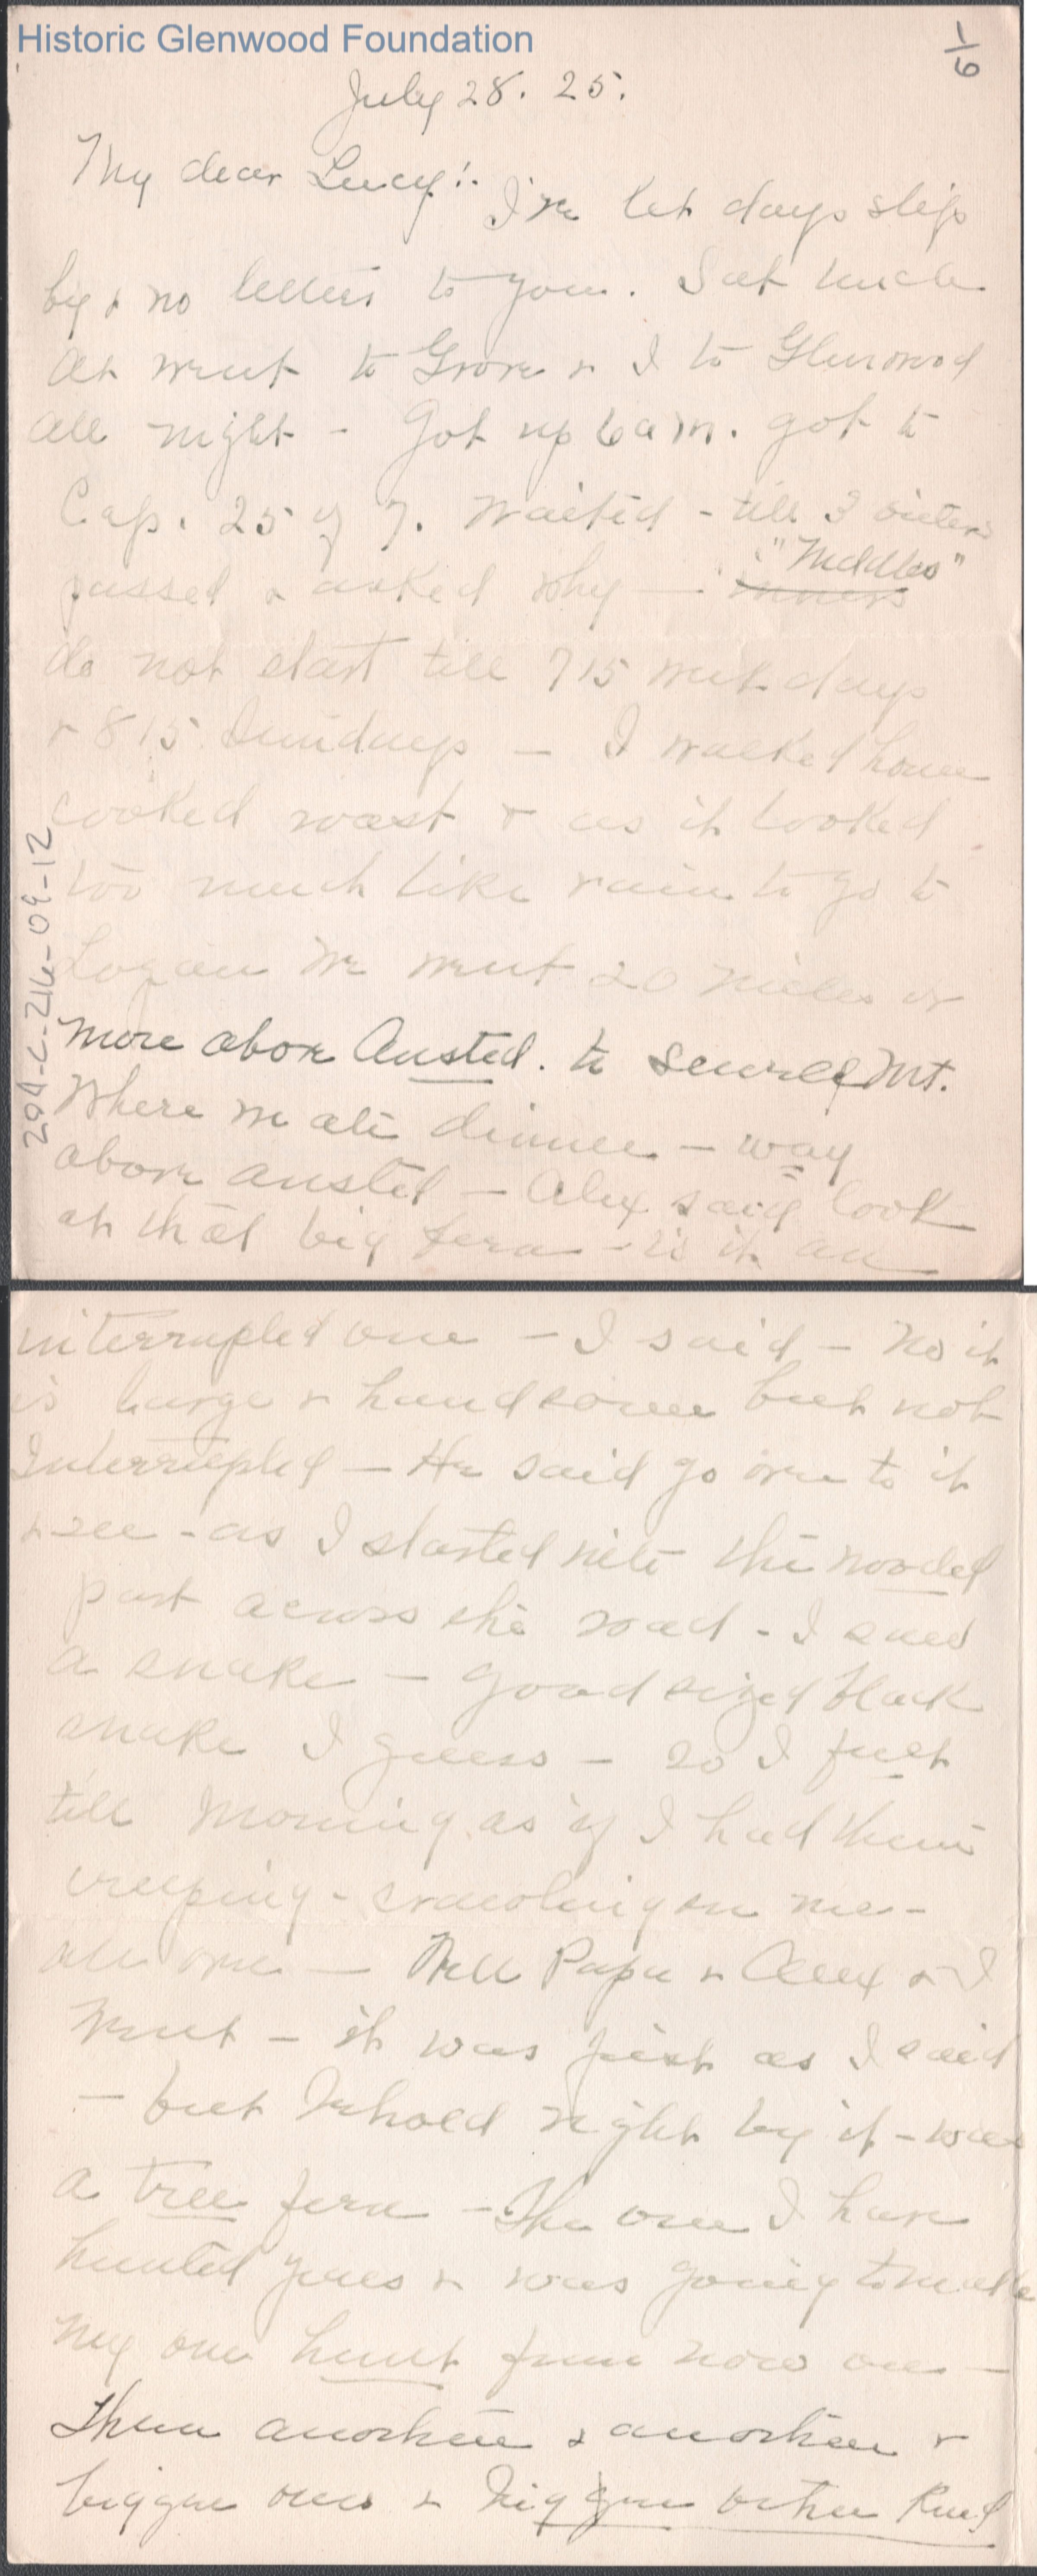 Historic Glenwood Foundation
1/6
July 28. 25.
My dear Lucy:
I've let days slip
by & no letters to you. Sat Uncle
At went to Grove & I to Glenwood
all night - Got up 6 a m. got to
Cap. 25 of 7. Waited - till 3
"Middles"
passed & asked why —
do not start till 715 week days
& 815 Sundays — I walked home
cooked roast & as it looked
too much like rain to go to
Logan we went 20 miles or
more above Ansted. to Sewell Mt.
Where we ate dinner — way
above Ansted — Alex said look
at that big fern - is it an
204-C-216-09-12
interrupted one — I said — No it
is large & handsome but not
Interrupted — He said go over to it
& see - as I started into the wooded
part across the road - I saw
a snake — good sized black
snake I guess — so I felt
till morning as if I had them
creeping - crawling on me -
all over — Well Papa & Alex & I
went — it was just as I said
— but behold right by it - was
a tree fern — The one I have
hunted years & was going to make
my one hunt from now on —
Then another & another &
bigger ones & bigger other kind